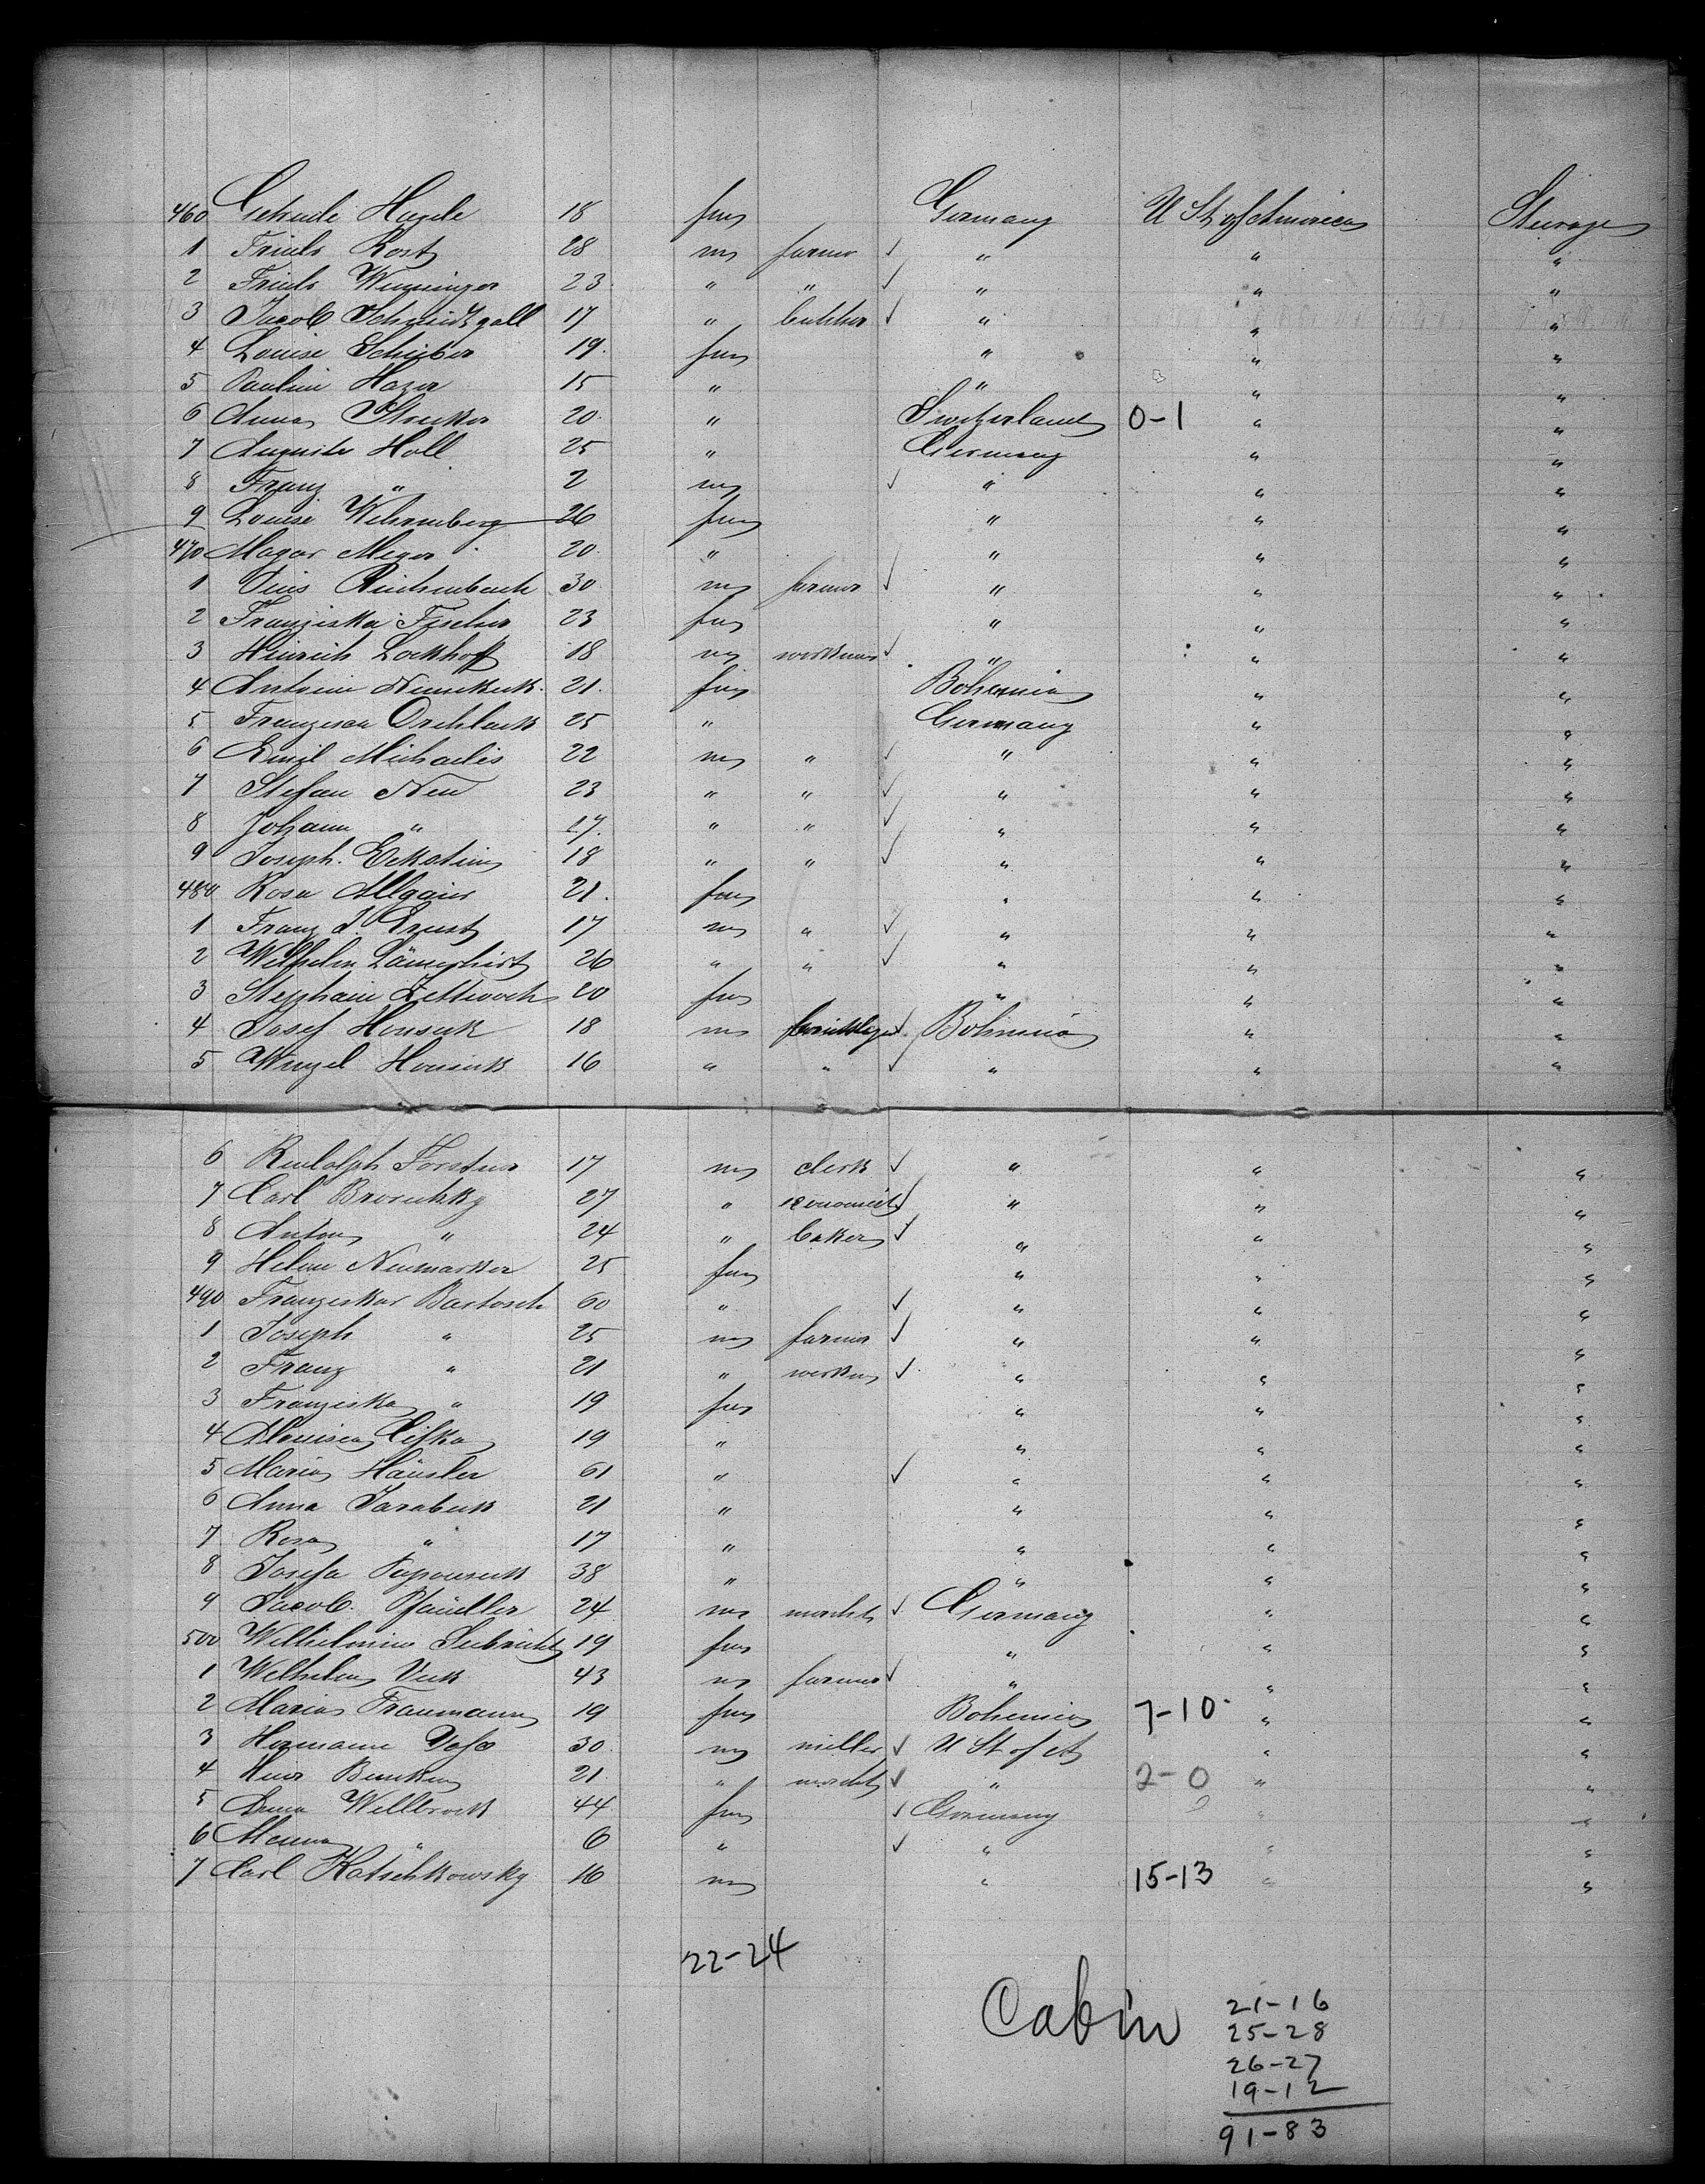 460 Gertrude Hagele 18 fm Germany U St of America Steerage
1 Friedr Rost 28 m farmer ✓ " " "
2 Friedr Wenninger 23 " " ✓ " " "
3 Jacob Schmidtgall 17 " butcher ✓ " " "
4 Louise Schieber 19 fm " " "
5 Pauline Hazer 15 " " " "
6 Anna Strecker 20 " Switzerland 0-1 " "
7 Auguste Holl 25 " Germany " "
8 Franz " 2 m ✓ " " "
9 Louise Wehrenberg 26 fm " " "
470 Magar Meyer 20 " " " "
1 Reichenbach 30 m farmer ✓ " " "
2 Franziska Fischer 23 fm " " "
3 Heinrich Lockhoff 18 m workman ✓ " " "
4 Antonie 21 fm Bohemia " "
5 25 " Germany " "
6 Emil Michaelis 22 m " ✓ " " "
7 Stefan Neu 23 " " ✓ " " "
8 Johann " 17 " " ✓ " " "
9 Joseph Eckstein 18 " " ✓ " " "
480 Rosa Allgaier 21 fm " " "
1 Franz J. Ernst 17 m " ✓ " " "
2 Wilhelm 26 " " ✓ " " "
3 Stephanie Zettwoch 20 fm " " "
4 Josef Housek 18 m bricklayer ✓ Bohemia " "
5 Wenzel Housek 16 " " ✓ " " "
6 Rudolph Forstner 17 m clerk ✓ " " "
7 Carl Broschky 27 " economist ✓ " " "
8 Anton " 24 " baker ✓ " " "
9 Helene Neumarker 25 fm " " "
490 Franziska Bartosch 60 " ✓ " " "
1 Joseph " 25 m farmer ✓ " " "
2 Franz " 21 " workm ✓ " " "
3 Franziska " 19 fm " " "
4 Cifka 19 " " " "
5 Maria Häusler 61 " ✓ " " "
6 Anna Jarabek 21 " " " "
7 Rosa " 17 " " " "
8 Josefa Papousek 38 " " " "
9 Jacob Pfaudler 24 m mercht ✓ Germany " "
500 Wilhelmine 19 fm " " "
1 Wilhelm 43 m farmer ✓ " " "
2 Maria Traumann 19 fm Bohemia 7-10 " "
3 Hermann 30 m miller ✓ U St of A " "
4 Heinr 21 " mercht ✓ " 2-0 " "
5 Wellbrock 44 fm ✓ Germany " "
6 " 6 " ✓ " " "
7 Carl Katschkowsky 16 m " 15-13 " "
22-24
Cabin 21-16
25-28
26-27
19-12
91-83